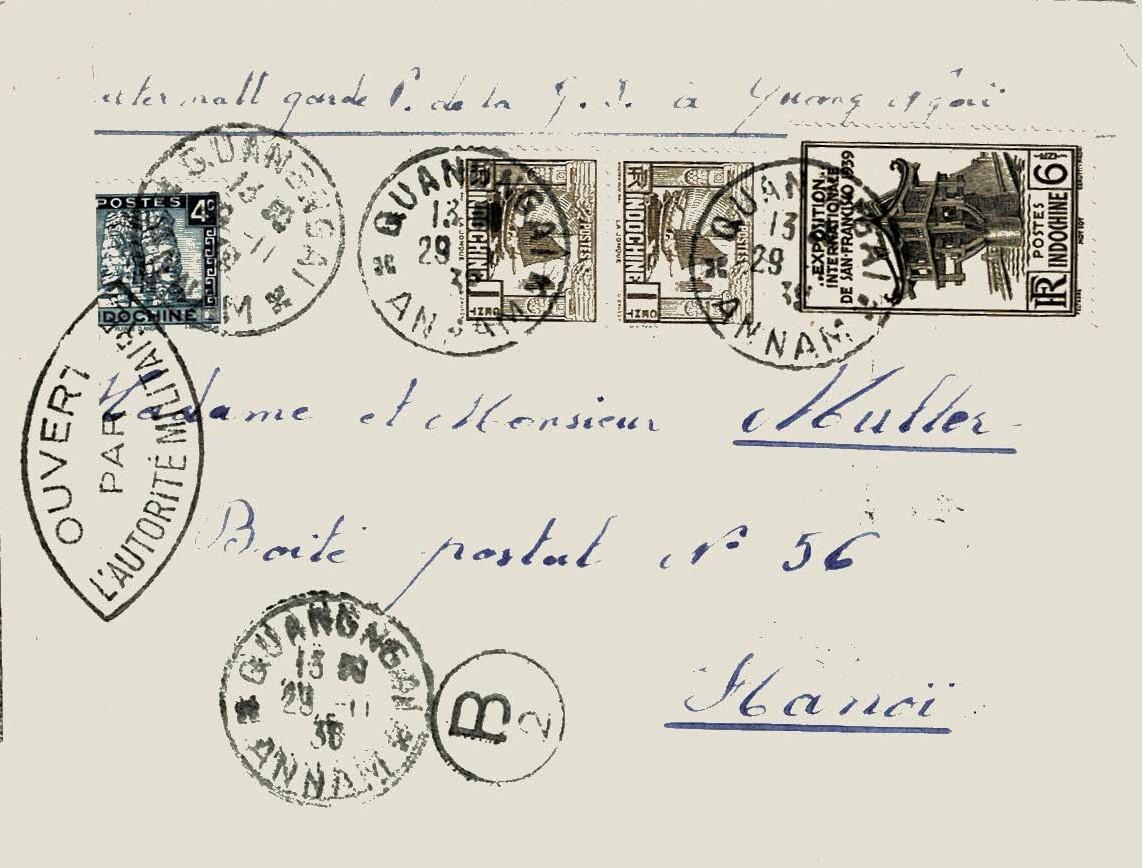 garde P. de la G. I. à Quang Ngôuï
QUANGNGAI
13 30
29-11
ANNAM
POSTES 4c
DOCHINE
QUANGNGAI
13
29
38
ANNAM
POSTES
INDOCHINE
1 CENT
POSTES
INDOCHINE
1 CENT
QUANGNGAI
13
29
38
ANNAM
EXPOSITION
INTERNATIONALE
DE SAN-FRANCISCO 1939
POSTES
INDOCHINE
6 cts
RF
OUVERT
PAR
L'AUTORITÉ MILITAIRE
Madame et Monsieur Muller
Boîte postal N° 56
Hanoï
QUANGNGAI
13 30
29-11
38
ANNAM
B
2